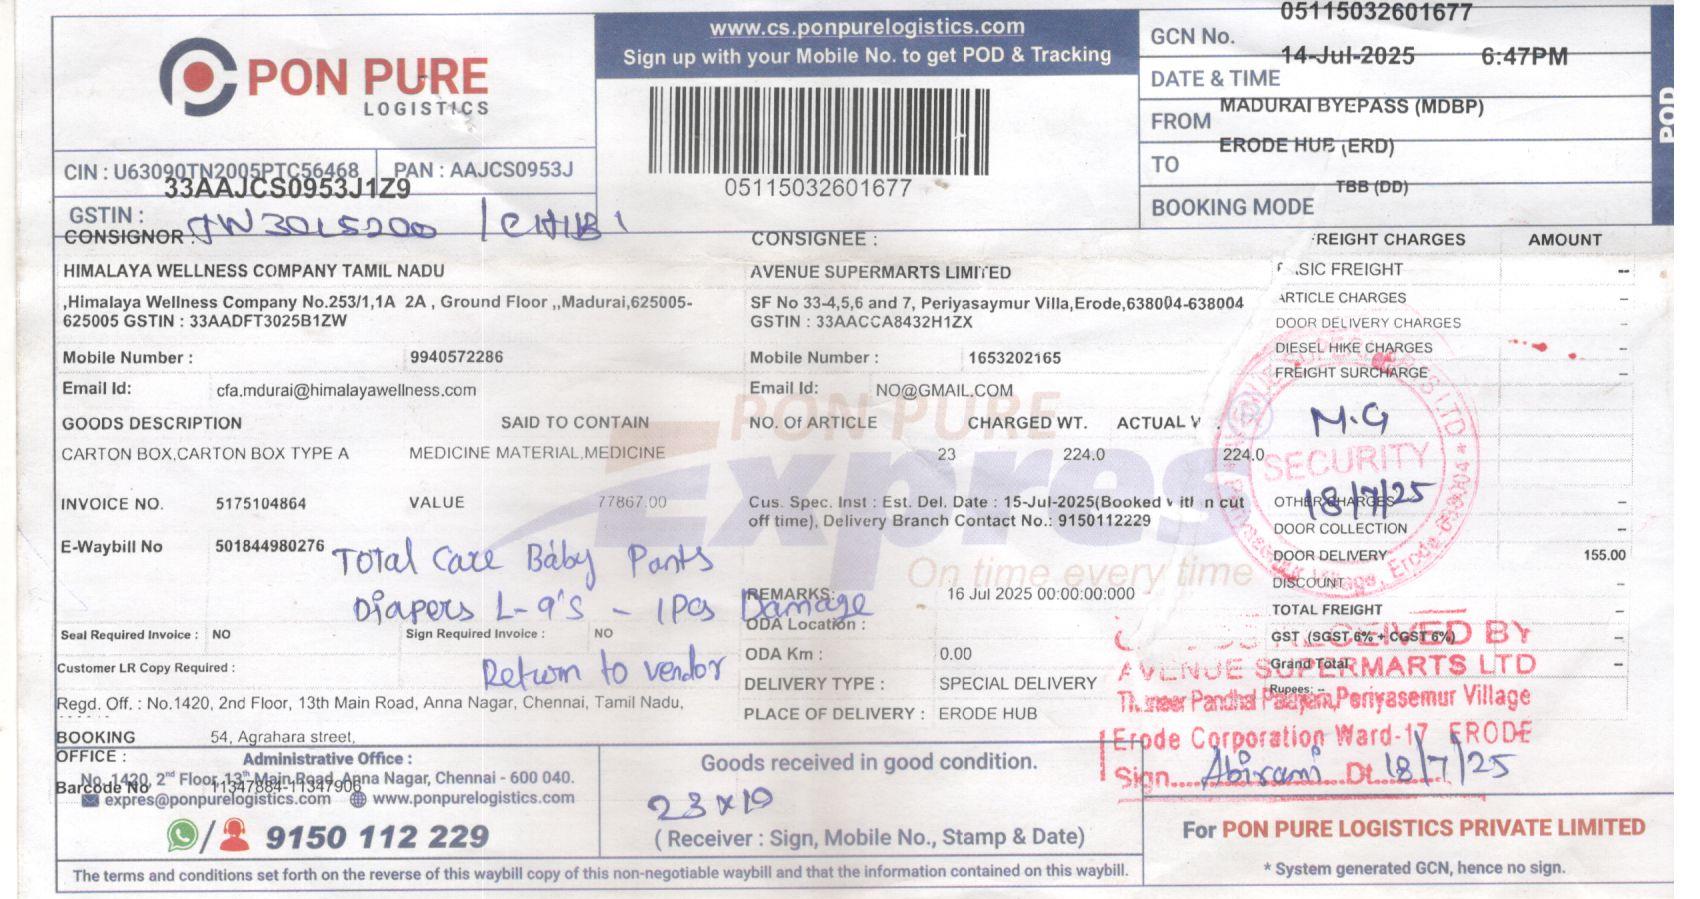 PON PURE
LOGISTICS
www.cs.ponpurelogistics.com
Sign up with your Mobile No. to get POD & Tracking
05115032601677
GCN No. 05115032601677
DATE & TIME 14-Jul-2025 6:47PM
FROM MADURAI BYEPASS (MDBP)
TO ERODE HUB (ERD)
BOOKING MODE TBB (DD)
POD
CIN : U63090TN2005PTC56468 PAN : AAJCS0953J
GSTIN : 33AAJCS0953J1Z9
CONSIGNOR
HIMALAYA WELLNESS COMPANY TAMIL NADU
,Himalaya Wellness Company No.253/1,1A 2A , Ground Floor ,,Madurai,625005-
625005 GSTIN : 33AADFT3025B1ZW
Mobile Number : 9940572286
Email Id: cfa.mdurai@himalayawellness.com
CONSIGNEE :
AVENUE SUPERMARTS LIMITED
SF No 33-4,5,6 and 7, Periyasaymur Villa,Erode,638004-638004
GSTIN : 33AACCA8432H1ZX
Mobile Number : 1653202165
Email Id: NO@GMAIL.COM
GOODS DESCRIPTION SAID TO CONTAIN NO. Of ARTICLE CHARGED WT. ACTUAL
CARTON BOX,CARTON BOX TYPE A MEDICINE MATERIAL,MEDICINE 23 224.0 224.0
INVOICE NO. 5175104864 VALUE 77867.00
Cus. Spec. Inst : Est. Del. Date : 15-Jul-2025(Booked within cut
off time), Delivery Branch Contact No.: 9150112229
E-Waybill No 501844980276
Total Care Baby Pants
Diapers L-9's - 1Pcs Damage
Return to vendor
PON PURE
Expres
On time every time
REMARKS: 16 Jul 2025 00:00:00:000
ODA Location :
ODA Km : 0.00
DELIVERY TYPE : SPECIAL DELIVERY
PLACE OF DELIVERY : ERODE HUB
Seal Required Invoice : NO Sign Required Invoice : NO
Customer LR Copy Required :
Regd. Off. : No.1420, 2nd Floor, 13th Main Road, Anna Nagar, Chennai, Tamil Nadu,
BOOKING OFFICE : 54, Agrahara street,
Barcode No 11347884-11347906
Administrative Office :
No. 1420, 2nd Floor, 13th Main Road, Anna Nagar, Chennai - 600 040.
expres@ponpurelogistics.com www.ponpurelogistics.com
9150 112 229
FREIGHT CHARGES AMOUNT
BASIC FREIGHT --
ARTICLE CHARGES --
DOOR DELIVERY CHARGES --
DIESEL HIKE CHARGES --
FREIGHT SURCHARGE --
OTHER CHARGES --
DOOR COLLECTION --
DOOR DELIVERY 155.00
DISCOUNT --
TOTAL FREIGHT --
GST (SGST 6% + CGST 6%) --
Grand Total --
Rupees: --
M.G
SECURITY
18/7/25
RECEIVED BY
AVENUE SUPERMARTS LTD
Pandhal Palayam,Periyasemur Village
Erode Corporation Ward-17 ERODE
Sign....Abirami....Dt.18/7/25
Goods received in good condition.
( Receiver : Sign, Mobile No., Stamp & Date)
For PON PURE LOGISTICS PRIVATE LIMITED
* System generated GCN, hence no sign.
The terms and conditions set forth on the reverse of this waybill copy of this non-negotiable waybill and that the information contained on this waybill.